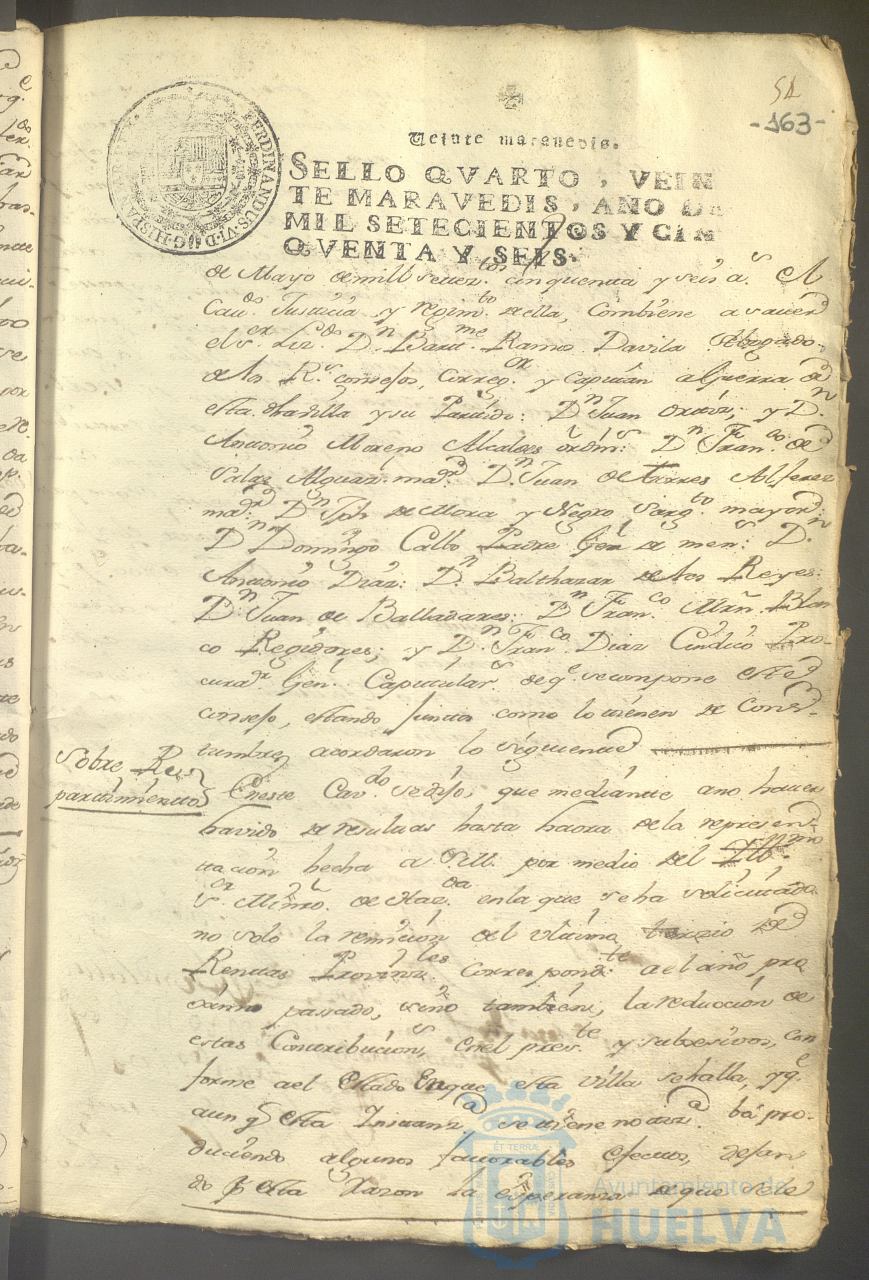 51
-163-
FERDINANDUS·VI·D·G·HISPANIAR·REX
Veinte maravedis.
SELLO QVARTO, VEIN
TE MARAVEDIS, AÑO DE
MIL SETECIENTOS Y CIN
QVENTA Y SEIS.
de Mayo de mill setez.tos cinquenta y seis a.s El
Cav.do Justicia y regim.to de ella, combiene a saver
el s.or Liz.do D.n Bart.me Ramos Davila Abogado
de los R.s consejos, correg.or y capitan a Guerra de
esta dha villa y su Partido: D.n Juan y D.n
Antonio Moreno Alcaldes ordin.s D.n Fran.co de
Salas Alguaz. ma.or D.n Juan de Torres Alferez
ma.or D.n Jph de Mora y Negro Sarg.to mayor:
D.n Domingo Calbo Padre Gen.l de men.s D.n
Antonio Diaz: D.n Balthazar de los Reyes:
D.n Juan de Balladares: D.n Fran.co Mrñ. Blan
co Regidores; y D.n Fran.co Diaz Cindico Pro-
curad.r Gen.l Capitulár.s de q.e se compone este
consejo, estando juntos como lo tienen de cons-
tumbre, acordaron lo siguiente
Sobre Re
partimientos
En este Cav.do se dijo, que mediante a no haver
havido de resultas hasta haora de la represen-
tacion hecha a S.M. por medio del Ill.mo
s.or Minro. de Haz.da en la que se ha solicitado
no solo la remicion del ultimo terzio de
Rentas Provinz.les correspond.te a el año pro
ximo passado, sino tambien, la reduccion de
estas Contribucion.s en el pres.te y subsesivos, con
forme a el estado en que esta villa se halla, y q.e
aun q.e esta Instanz.a se tiene notiz.a bá pro-
duciendo algunos favorables efectos, dejan
do p.r esta razon la esperanza de que se le
ET TERRA
Ayuntamiento de
HUELVA